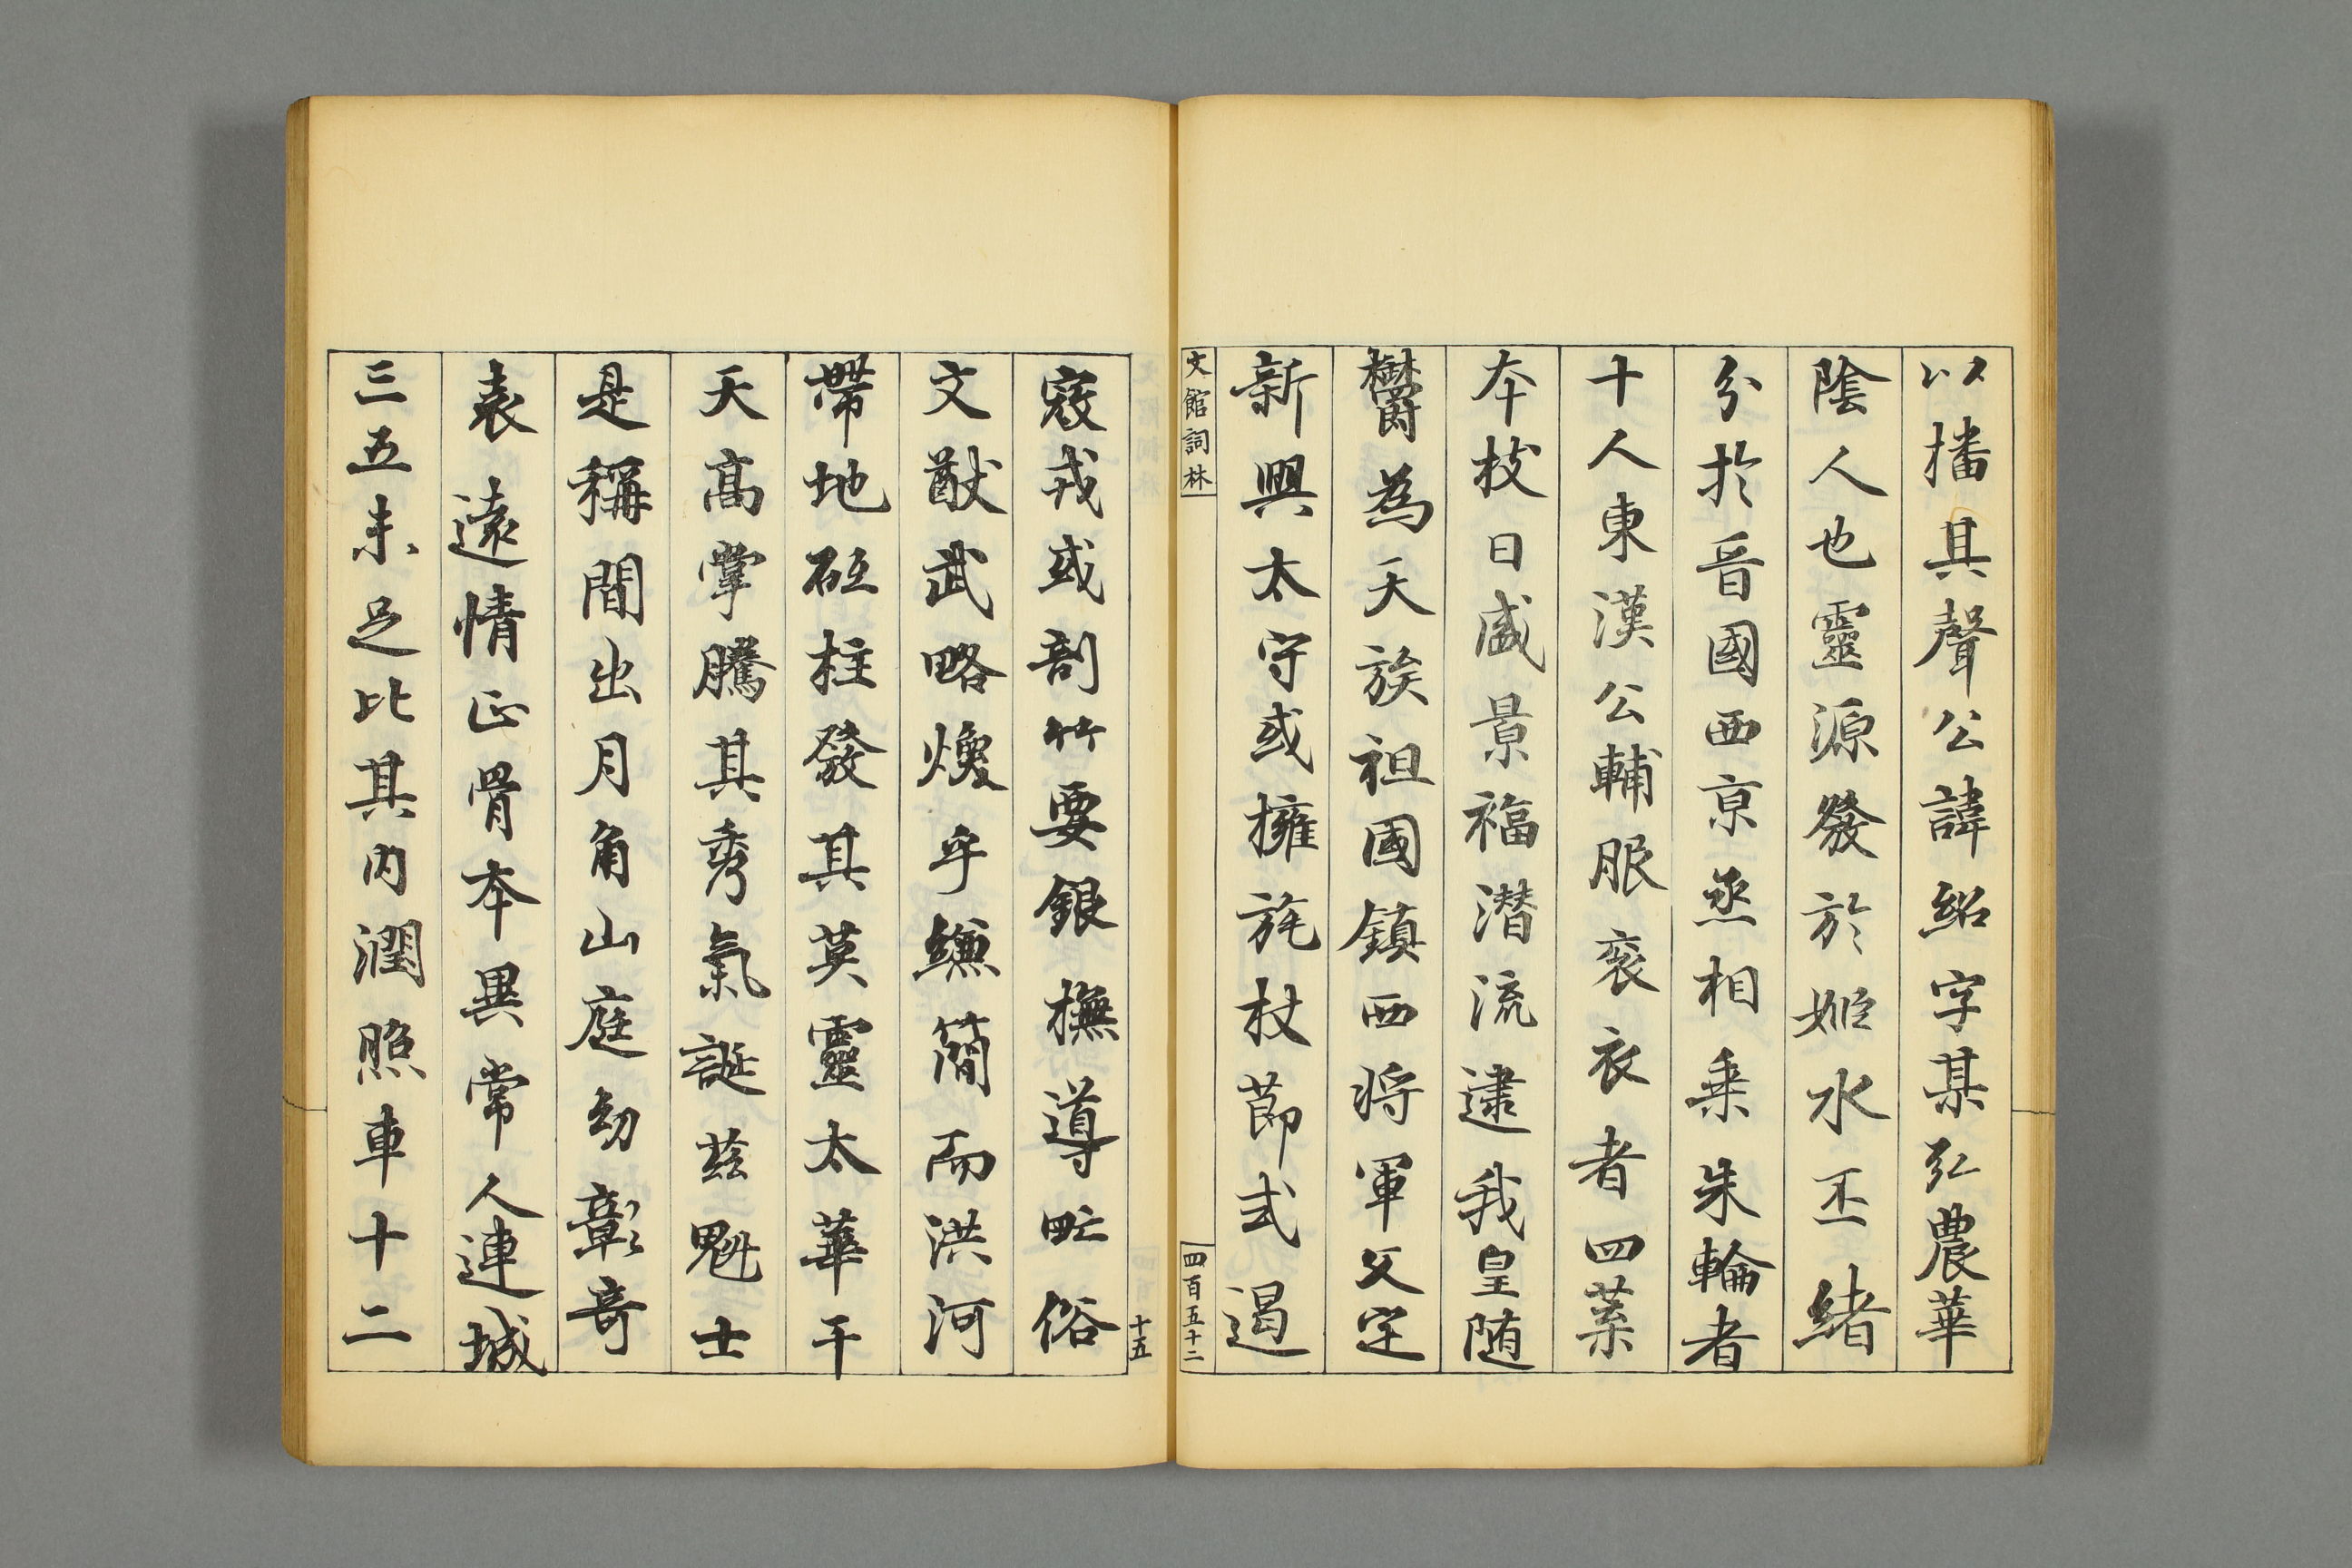 以播其聲公諱紹字某弘農華
陰人也靈源發於姬水丕緒
分於晉國西京丞相乗朱輪者
十人東漢公輔服衮衣者四葉
本枝日盛景福潜流逮我皇随
欝為天族祖國鎮西将軍父定
新興太守或擁旄杖莭式遏
文館詞林
四百五十二
十五
寇戎或剖竹要銀撫導甿俗
文猷武略煥乎緗簡而洪河
帶地砥柱發其英靈太華干
天高掌騰其秀氣誕茲魁士
是稱間出月角山庭幼彰竒
表遠情正骨本異常人連城
三五未足比其内潤照車十二